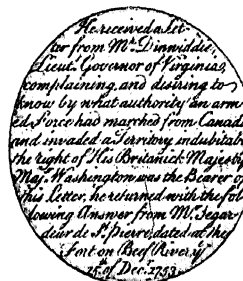 He received a Let-
ter from Mr. Dinwiddie,
Lieut. Governor of Virginia,
complaining, and desiring to
know by what authority an arm-
ed Force had marched from Canada
and invaded a Territory indubitably
the right of His Britanick Majesty
Maj. Washington was the Bearer of
this letter, he returned with the fol-
lowing Answer from M. Legar-
deur de St. Pierre, dated at the
Fort on Beef River, ye
15th of Decr. 1753